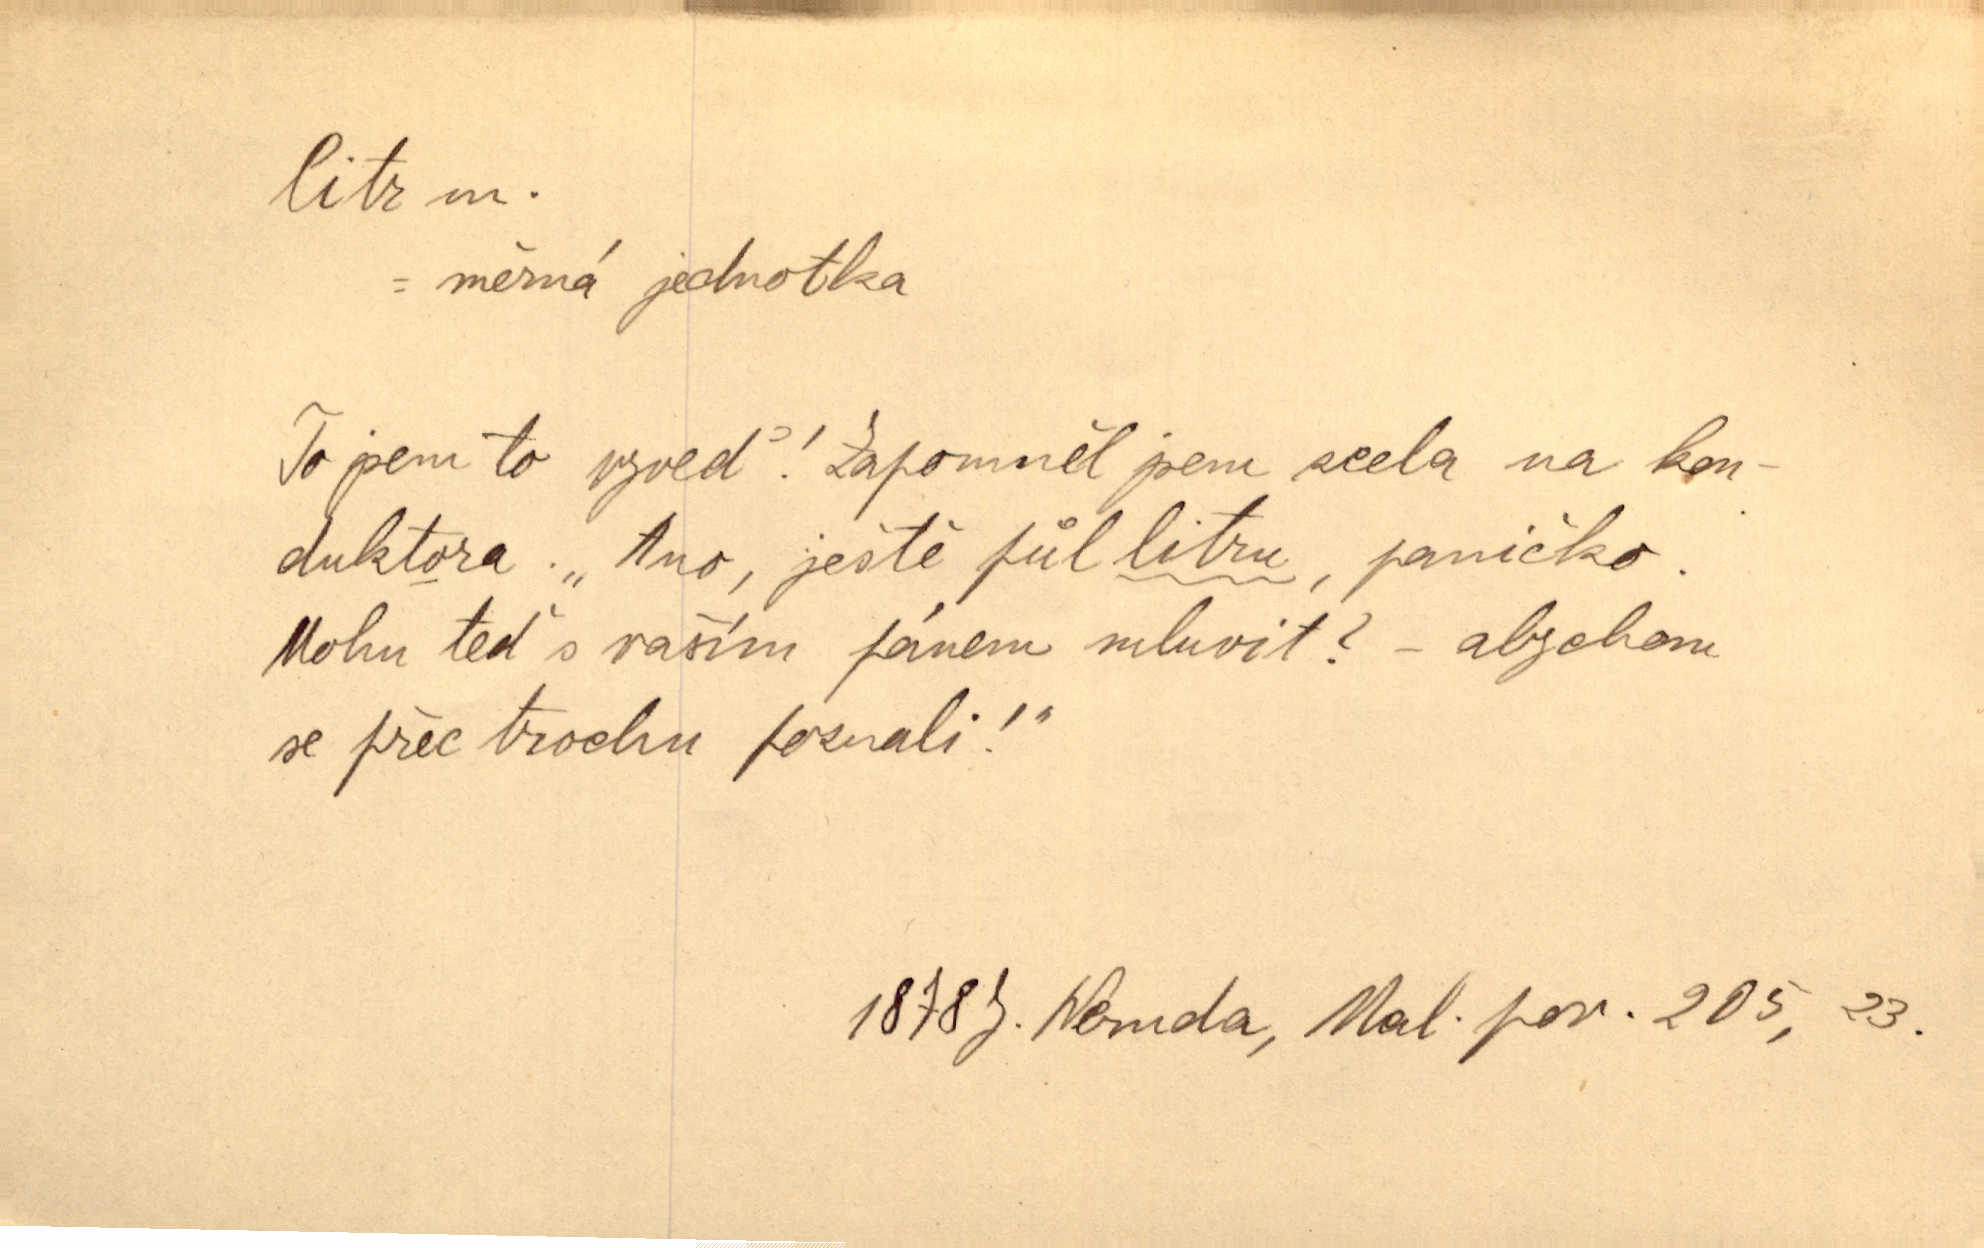 litr m.
= měrná jednotka
To jsem to vyved'! Zapomněl jsem scela na kon-
duktora. „Ano, ještě půl litru, paničko.
Mohu teď s vaším pánem mluvit? – abychom
se přec trochu poznali!"
1878 J. Neruda, Mal. pov. 205, 23.